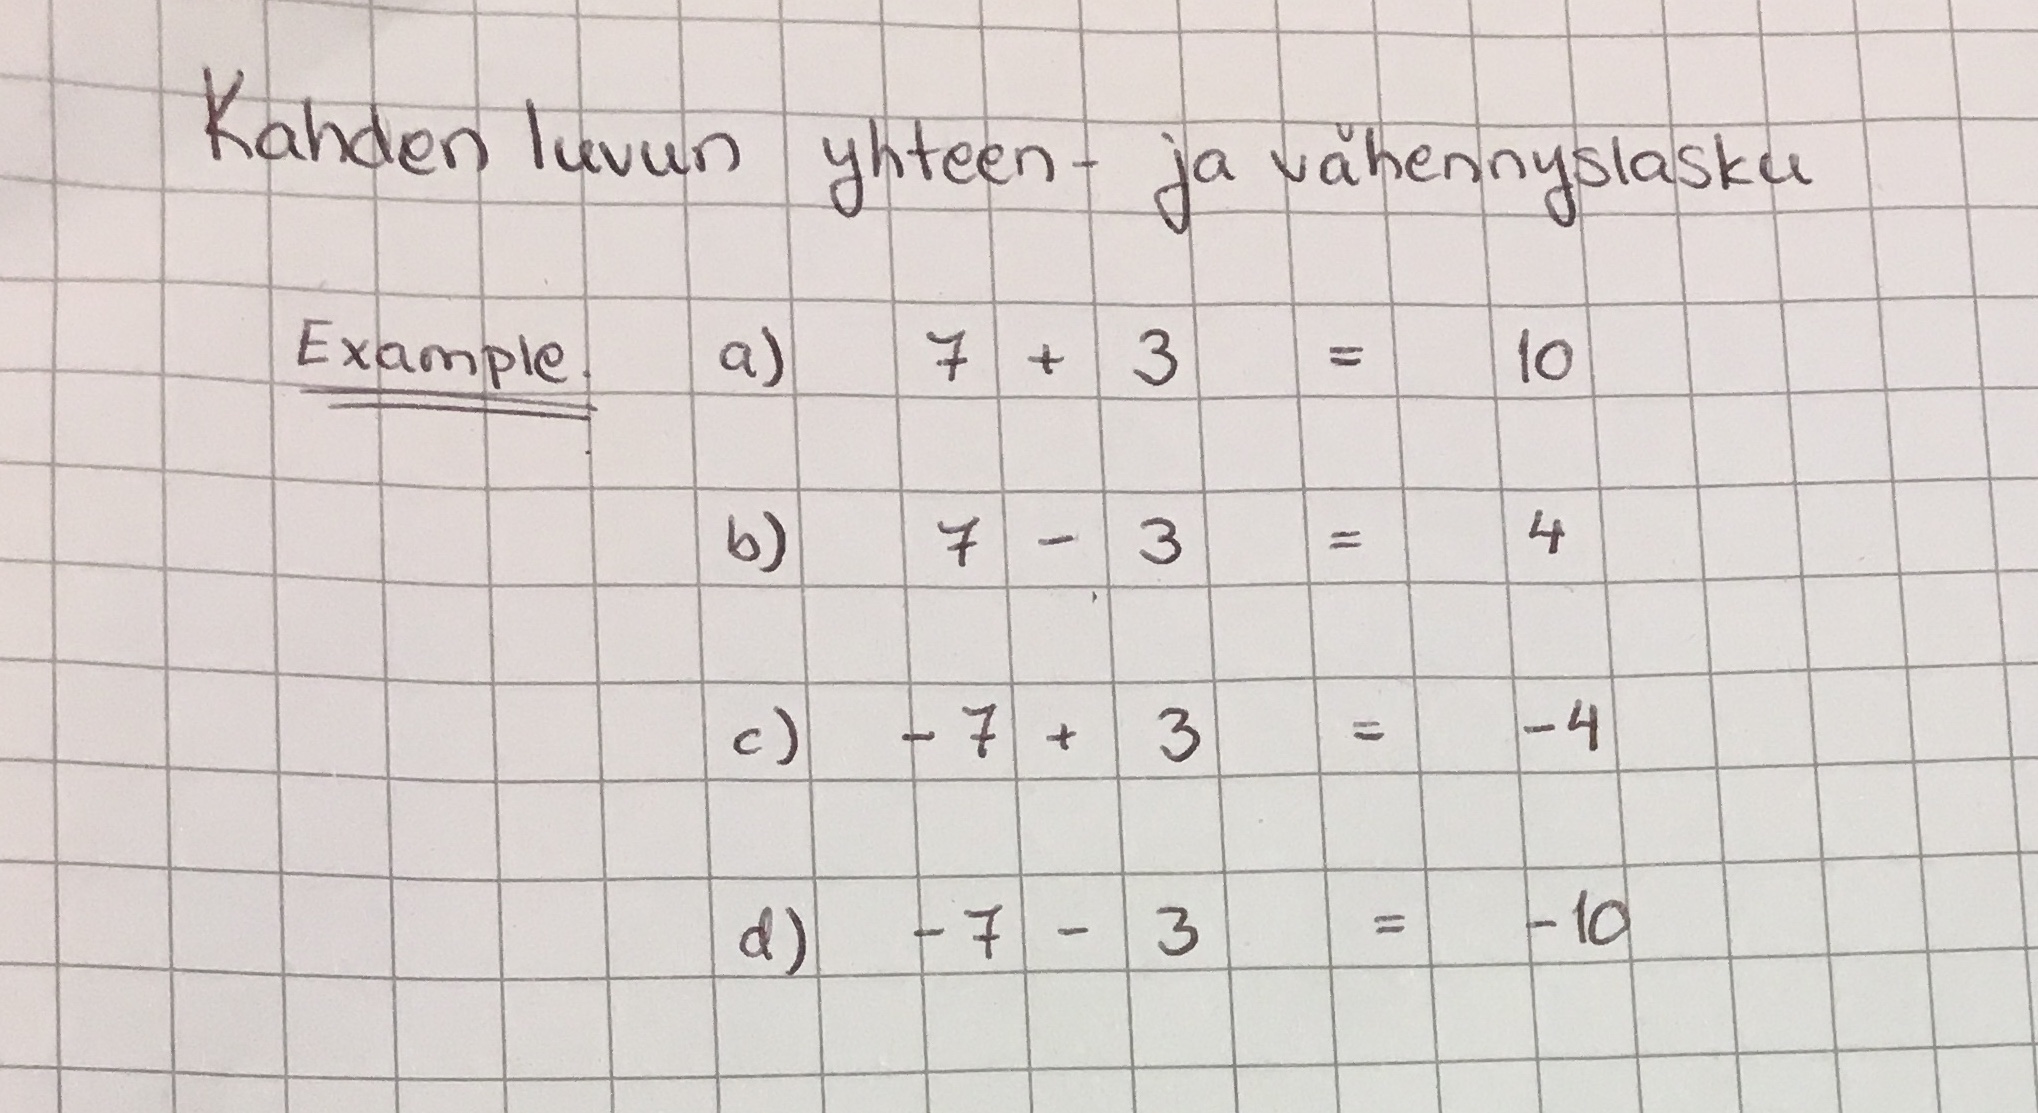 Kahden luvun yhteen- ja vähennyslasku
Example. a) 7 + 3 = 10
b) 7 - 3 = 4
c) -7 + 3 = -4
d) -7 - 3 = -10